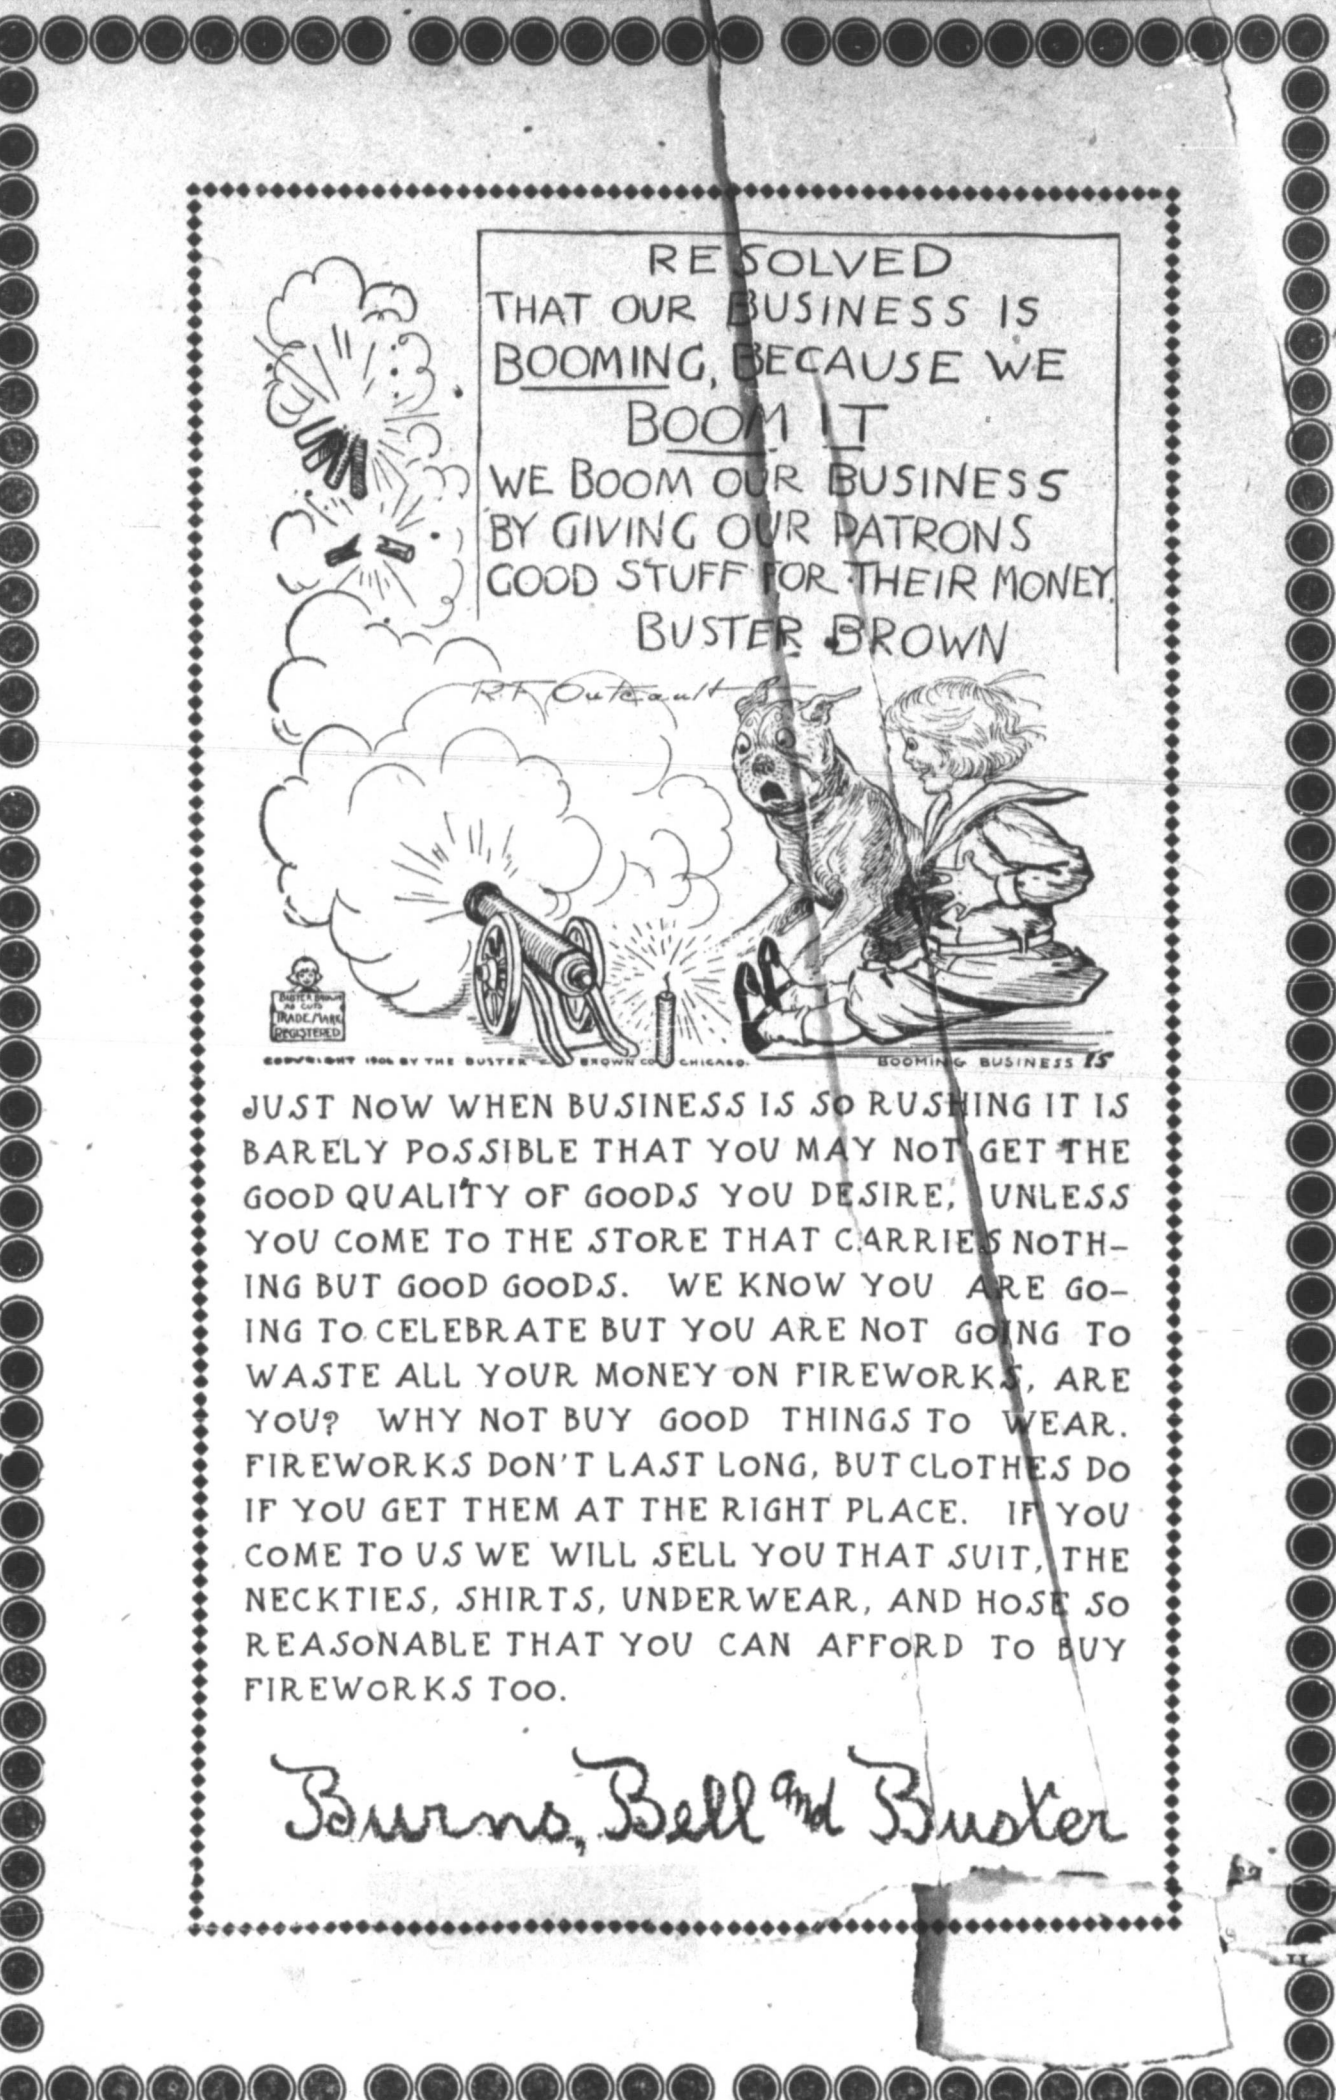 RESOLVED
THAT OUR BUSINESS IS
BOOMING, BECAUSE WE
BOOM IT
WE BOOM OUR BUSINESS
BY GIVING OUR PATRONS
GOOD STUFF FOR THEIR MONEY.
BUSTER BROWN
R.F. Outcault
BUSTER BROWN
AD CUTS
TRADE MARK
REGISTERED
COPYRIGHT 1906 BY THE BUSTER BROWN CO CHICAGO.
BOOMING BUSINESS 15
JUST NOW WHEN BUSINESS IS SO RUSHING IT IS
BARELY POSSIBLE THAT YOU MAY NOT GET THE
GOOD QUALITY OF GOODS YOU DESIRE, UNLESS
YOU COME TO THE STORE THAT CARRIES NOTH-
ING BUT GOOD GOODS. WE KNOW YOU ARE GO-
ING TO CELEBRATE BUT YOU ARE NOT GOING TO
WASTE ALL YOUR MONEY ON FIREWORKS, ARE
YOU? WHY NOT BUY GOOD THINGS TO WEAR.
FIREWORKS DON'T LAST LONG, BUT CLOTHES DO
IF YOU GET THEM AT THE RIGHT PLACE. IF YOU
COME TO US WE WILL SELL YOU THAT SUIT, THE
NECKTIES, SHIRTS, UNDERWEAR, AND HOSE SO
REASONABLE THAT YOU CAN AFFORD TO BUY
FIREWORKS TOO.
Burns, Bell and Buster